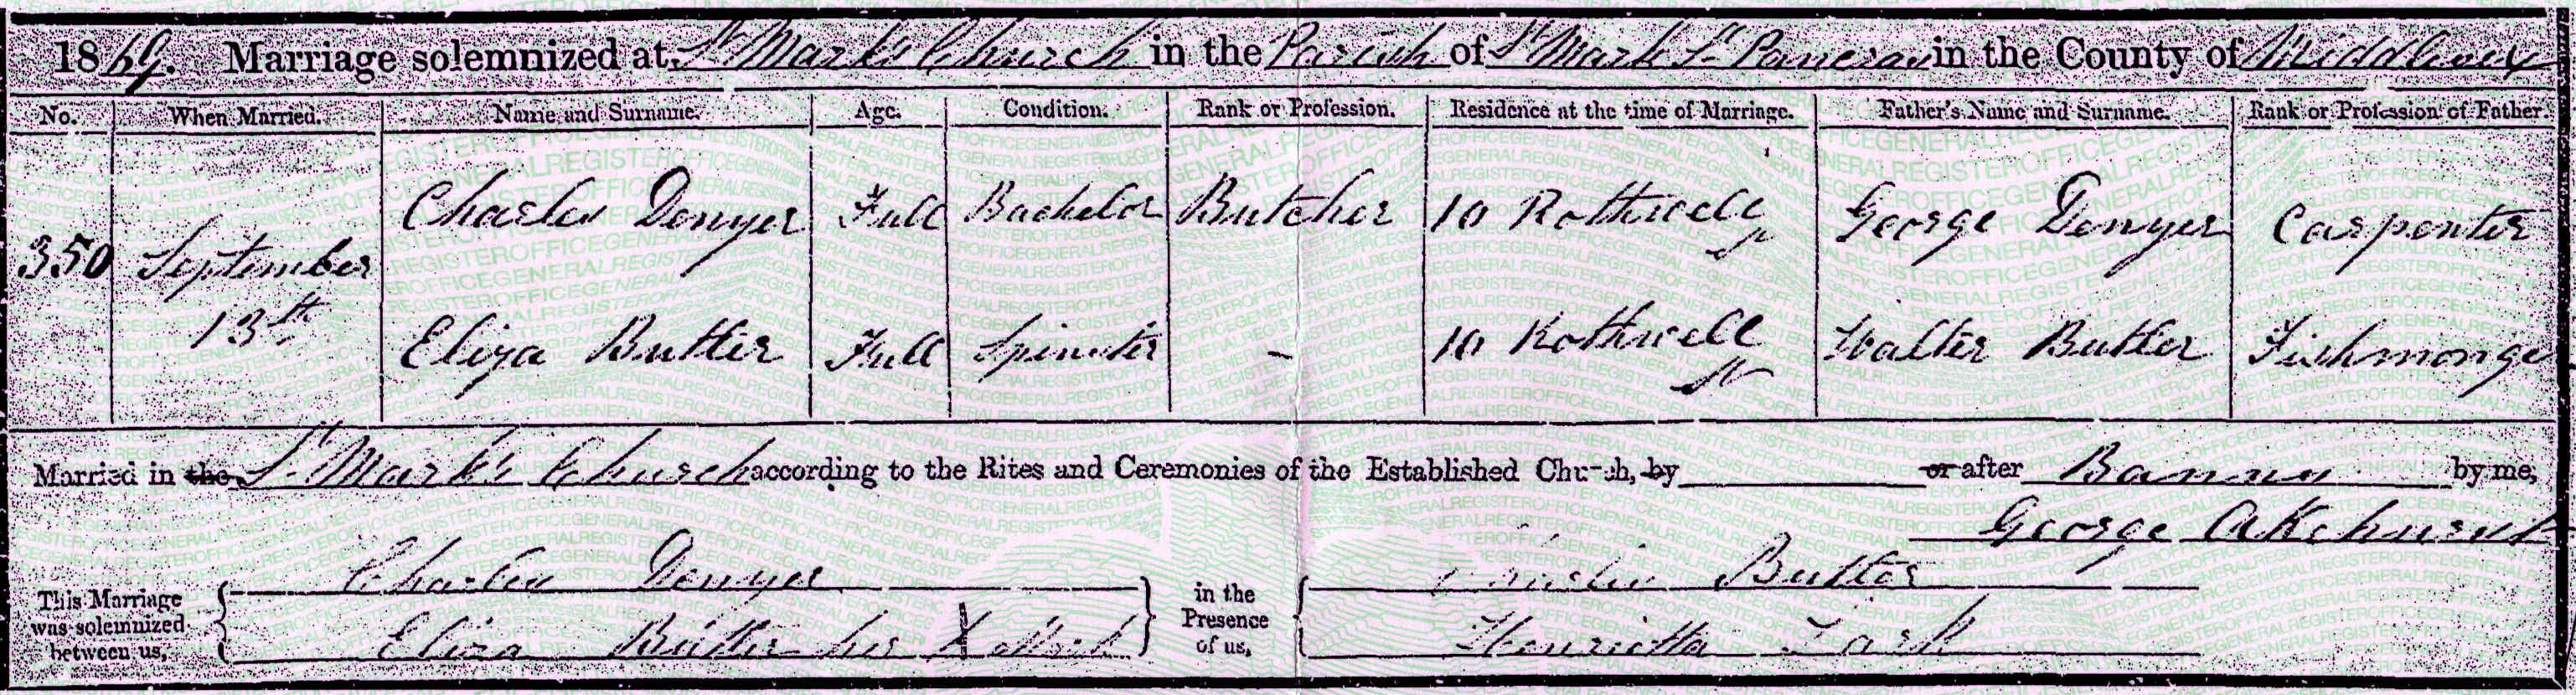 1869. Marriage solemnized at St Mark's Church in the Parish of St Mark St Pancras in the County of Middlesex
No. When Married. Name and Surname. Age. Condition. Rank or Profession. Residence at the time of Marriage. Father's Name and Surname. Rank or Profession of Father.
350 September 13th
Charles Denyer Full Bachelor Butcher 10 Rothwell St George Denyer Carpenter
Eliza Butler Full Spinster - 10 Rothwell St Walter Butler Fishmonge
Married in the St Mark's Church according to the Rites and Ceremonies of the Established Church, by or after Banns by me,
George Akehurst
This Marriage was solemnized between us,
Charles Denyer
Eliza Butler her X Mark
in the Presence of us,
Butler
Henrietta